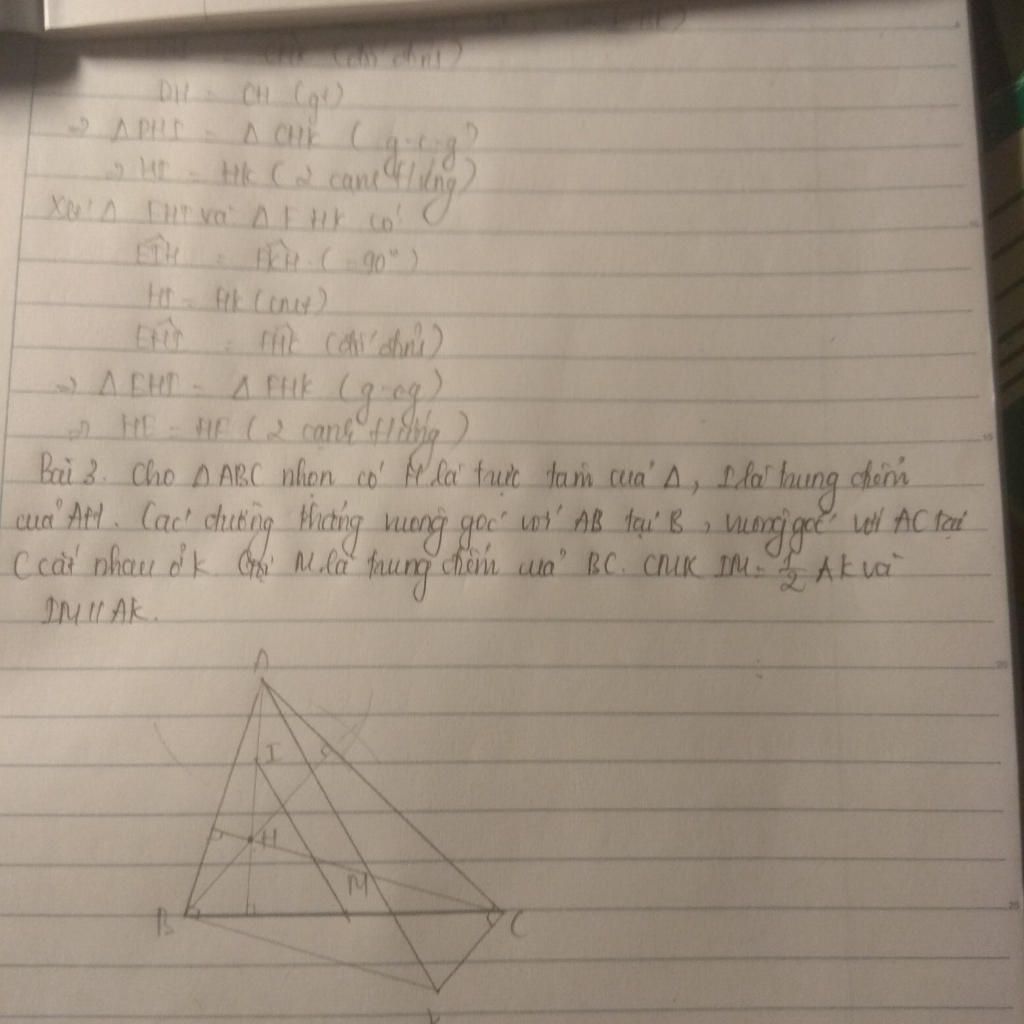 DH = CH (gt)
=> Δ DHI = Δ CHK ( g-c-g )
=> HI = HK ( 2 cạnh t/ứng )
Xét Δ EHI và Δ FHK có
EIH = FKH ( = 90° )
HI = HK (cmt)
EHI = FHK (đối đỉnh)
=> Δ EHI = Δ FHK ( g-c-g )
=> HE = HF ( 2 cạnh t/ứng )
Bài 3. Cho Δ ABC nhọn có H là trực tâm của Δ, I là trung điểm
của AH. Các đường thẳng vuông góc với AB tại B, vuông góc với AC tại
C cắt nhau ở K. Gọi M là trung điểm của BC. CMR IM = 1/2 AK và
IM // AK.
A
I
H
M
B
C
K